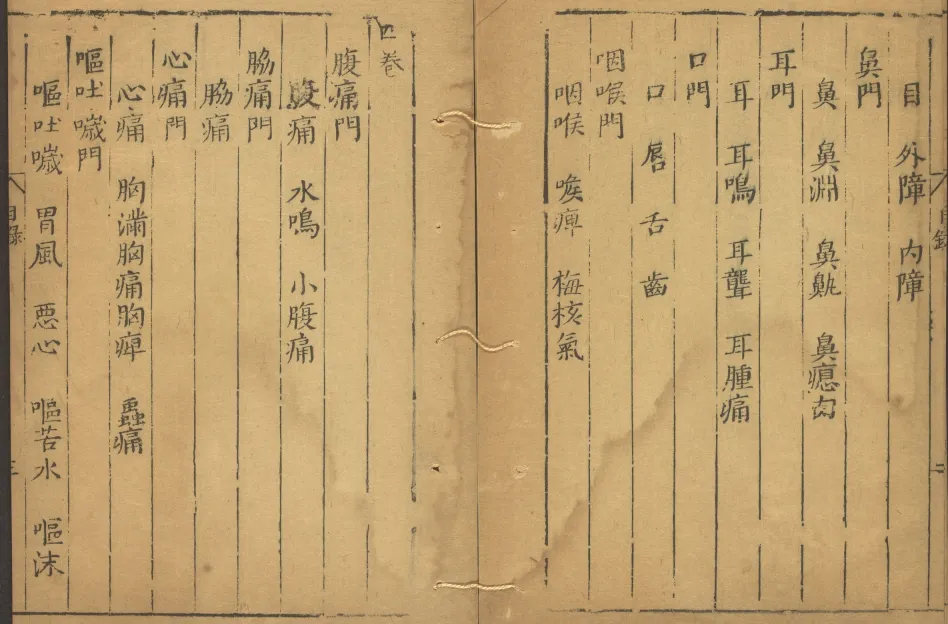 目 外障 內障
鼻門
鼻 鼻淵 鼻鼽 鼻瘜肉
耳門
耳 耳鳴 耳聾 耳腫痛
口門
口 唇 舌 齒
咽喉門
咽喉 喉痺 梅核氣
四卷
腹痛門
腹痛 水鳴 小腹痛
脇痛門
脇痛
心痛門
心痛 胸滿胸痛胸痺 蟲痛
嘔吐噦門
嘔吐噦 胃風 惡心 嘔苦水 嘔沫
目錄
三
目錄
二